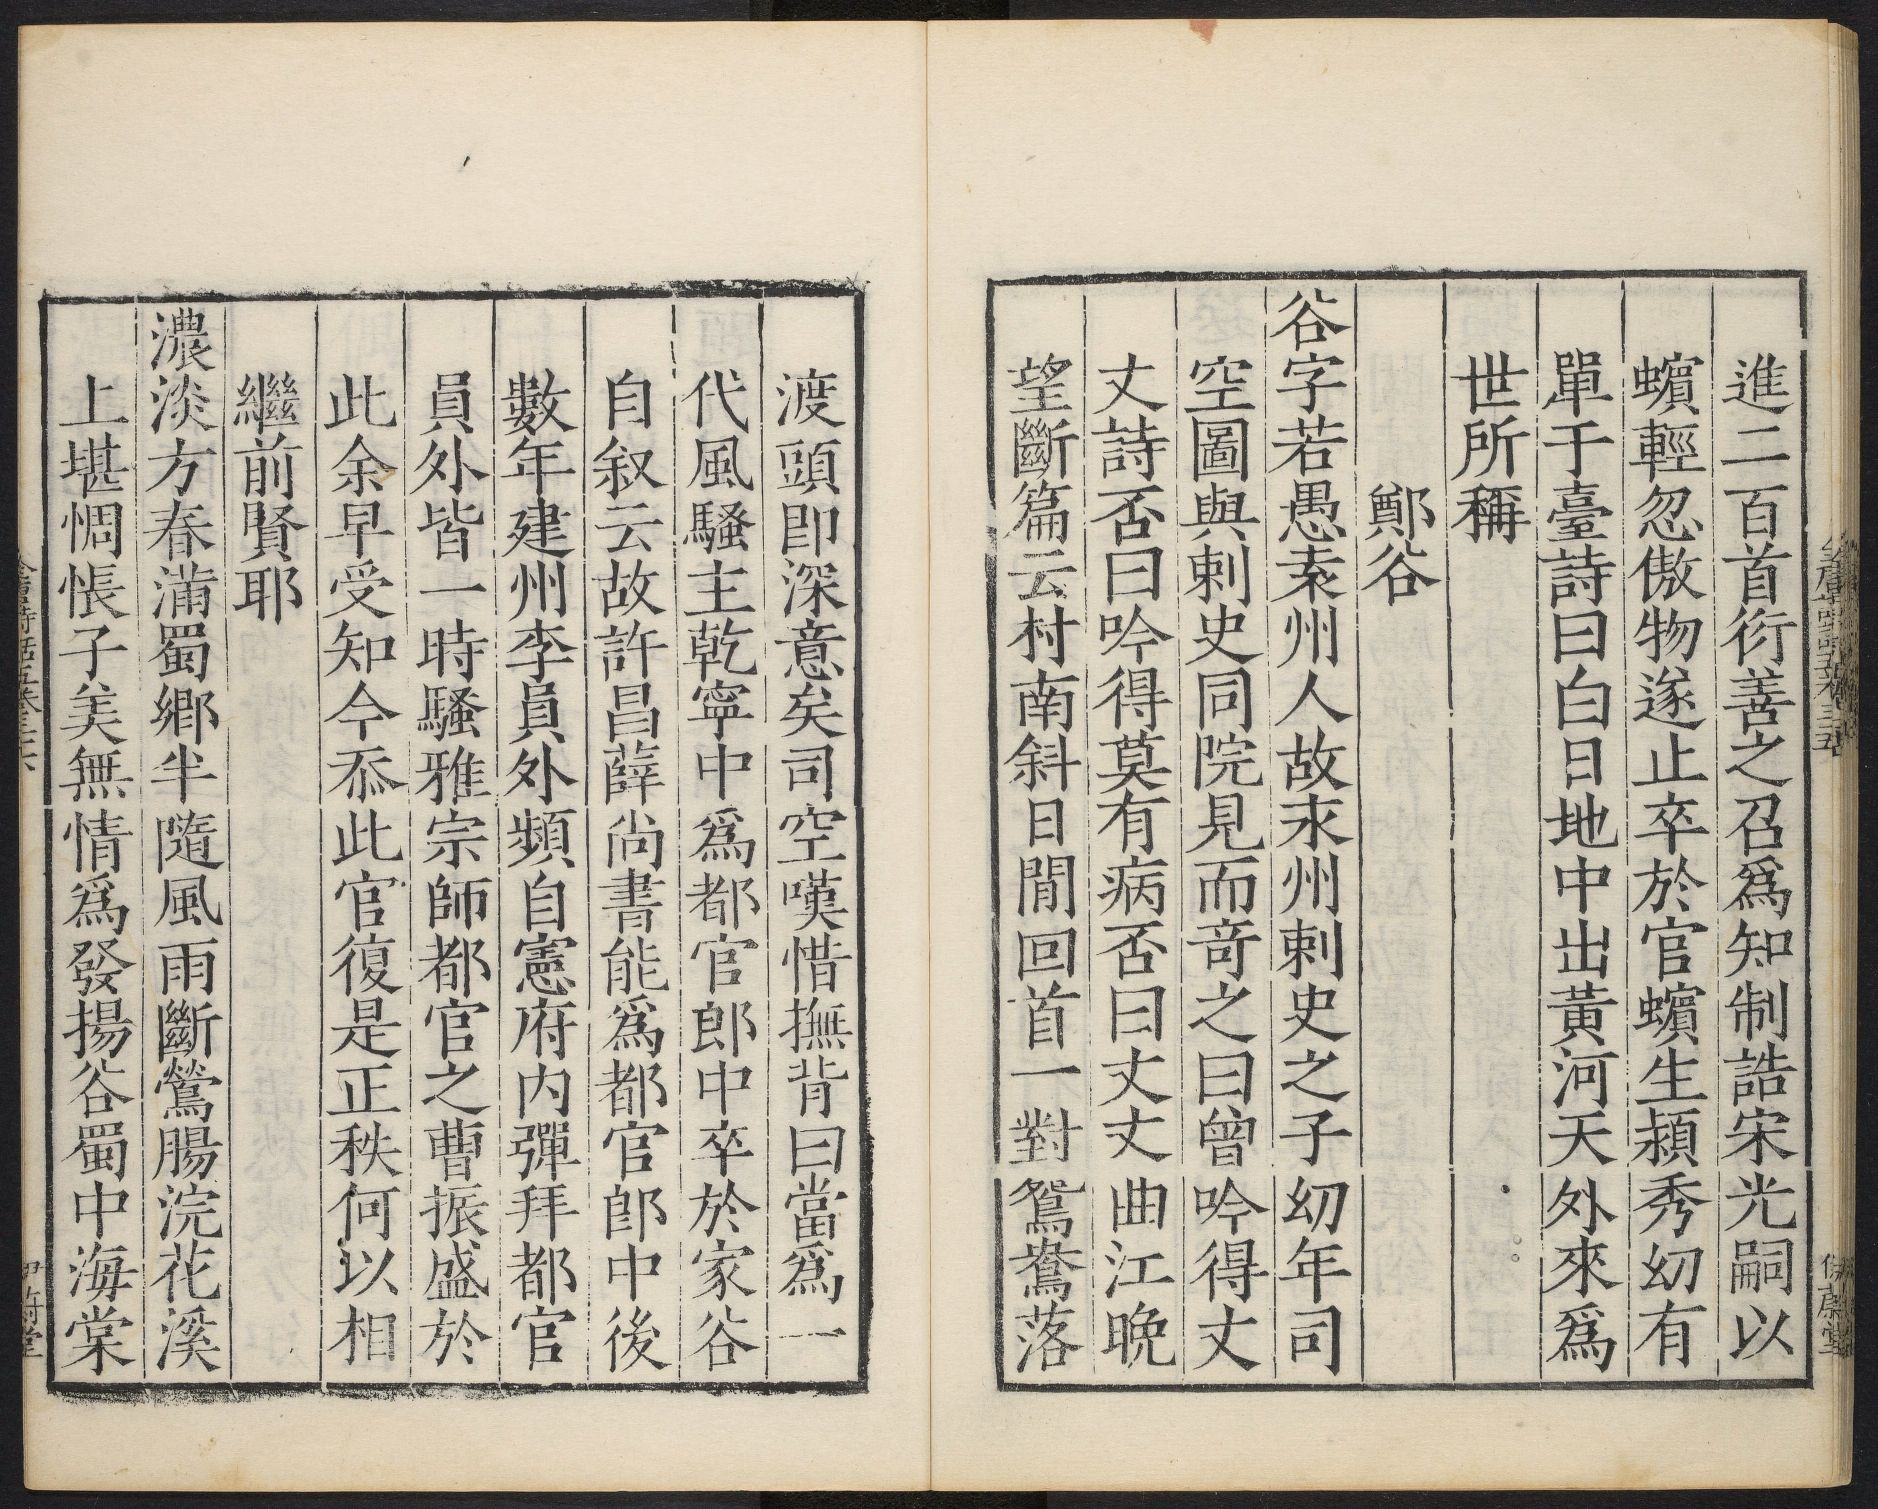 進二百首衍善之召爲知制誥宋光嗣以
蠙輕忽傲物遂止卒於官蠙生潁秀幼有
單于臺詩曰白日地中出黃河天外來爲
世所稱
鄭谷
谷字若愚袁州人故永州刺史之子幼年司
空圖與刺史同院見而竒之曰曾吟得丈
丈詩否曰吟得莫有病否曰丈丈曲江晚
望斷篇云村南斜日閒回首一對鴛鴦落
渡頭即深意矣司空嘆惜撫背曰當爲一
代風騷主乾寧中爲都官郎中卒於家谷
自叙云故許昌薛尚書能爲都官郎中後
數年建州李員外頻自憲府内彈拜都官
員外皆一時騷雅宗師都官之曹振盛於
此余早受知今忝此官復是正秩何以相
繼前賢耶
濃淡方春滿蜀鄉半隨風雨斷鶯腸浣花溪
上堪惆悵子美無情爲發揚谷蜀中海棠